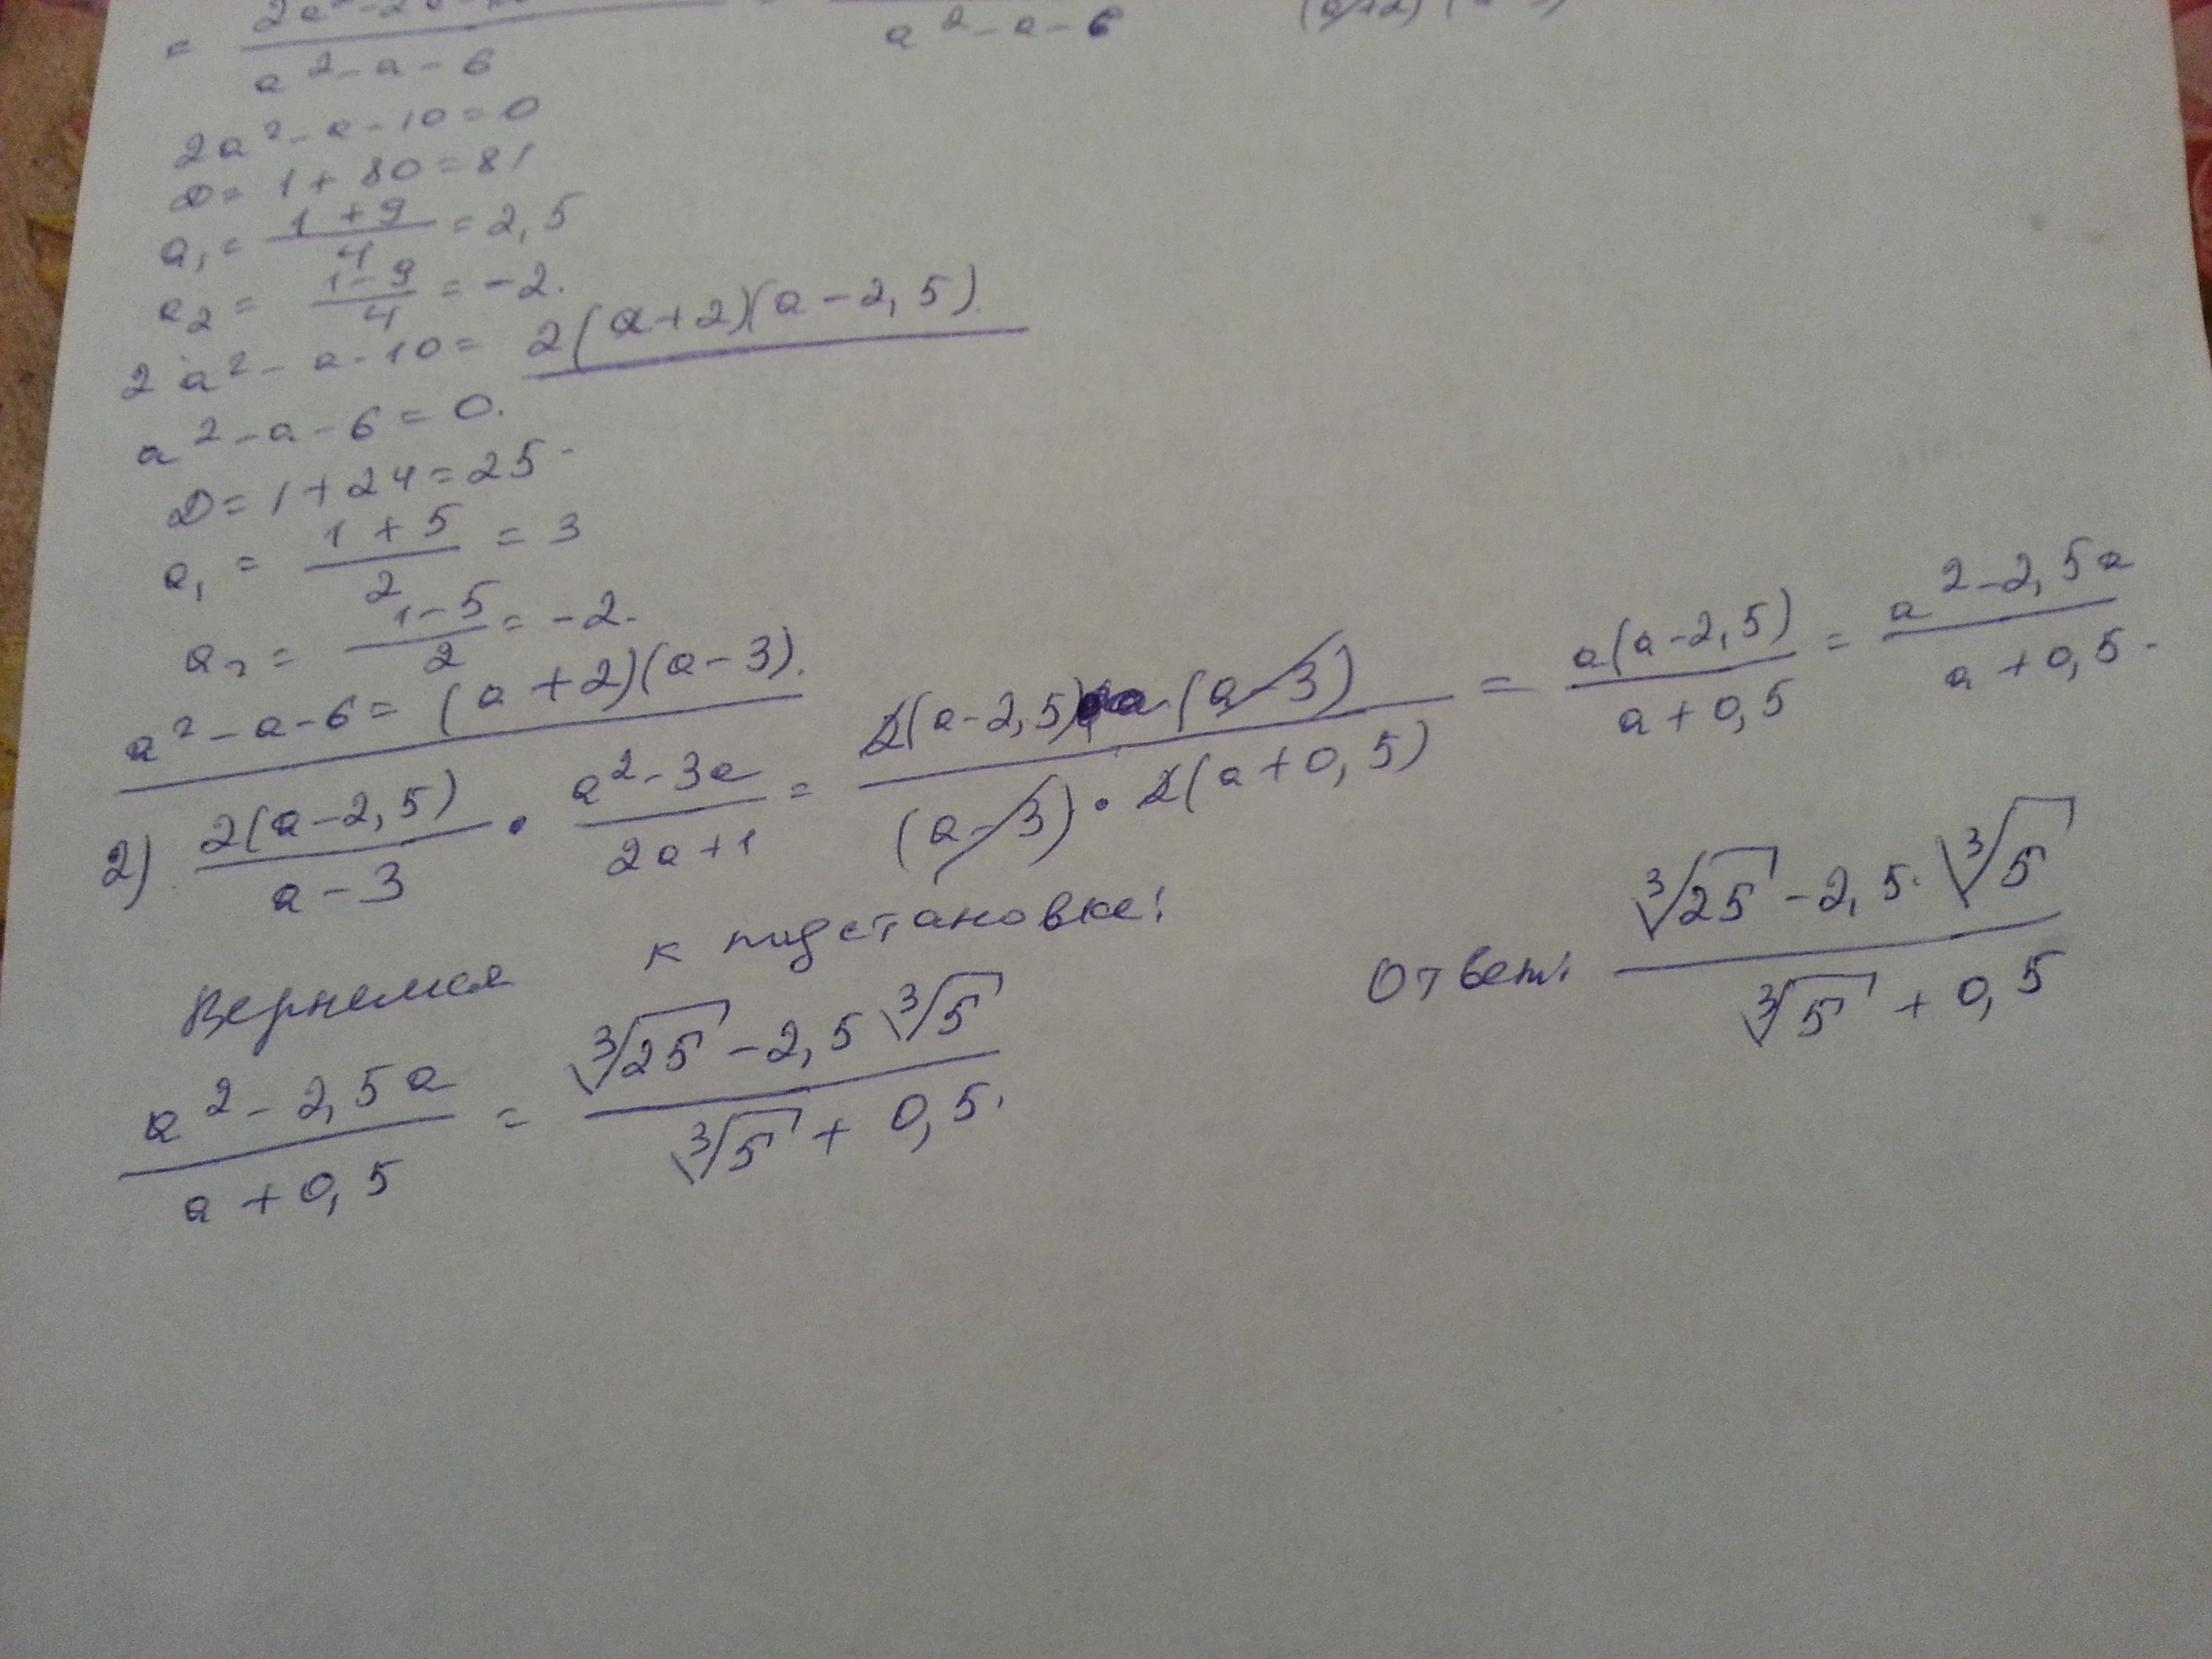 = / (a² - a - 6)
a² - a - 6
2a² - a - 10 = 0
D = 1 + 80 = 81
a₁ = (1 + 9)/4 = 2,5
a₂ = (1 - 9)/4 = -2.
2a² - a - 10 = 2(a+2)(a - 2,5)
a² - a - 6 = 0.
D = 1 + 24 = 25
a₁ = (1 + 5)/2 = 3
a₂ = (1 - 5)/2 = -2.
a² - a - 6 = (a + 2)(a - 3).
2) 2(a - 2,5)/(a - 3) · (a² - 3a)/(2a + 1) = 2(a - 2,5)a·(a - 3)/((a - 3)·2(a + 0,5)) = a(a - 2,5)/(a + 0,5) = (a² - 2,5a)/(a + 0,5).
Вернемся к подстановке:
(a² - 2,5a)/(a + 0,5) = (∛25 - 2,5∛5)/(∛5 + 0,5).
Ответ: (∛25 - 2,5·∛5)/(∛5 + 0,5)